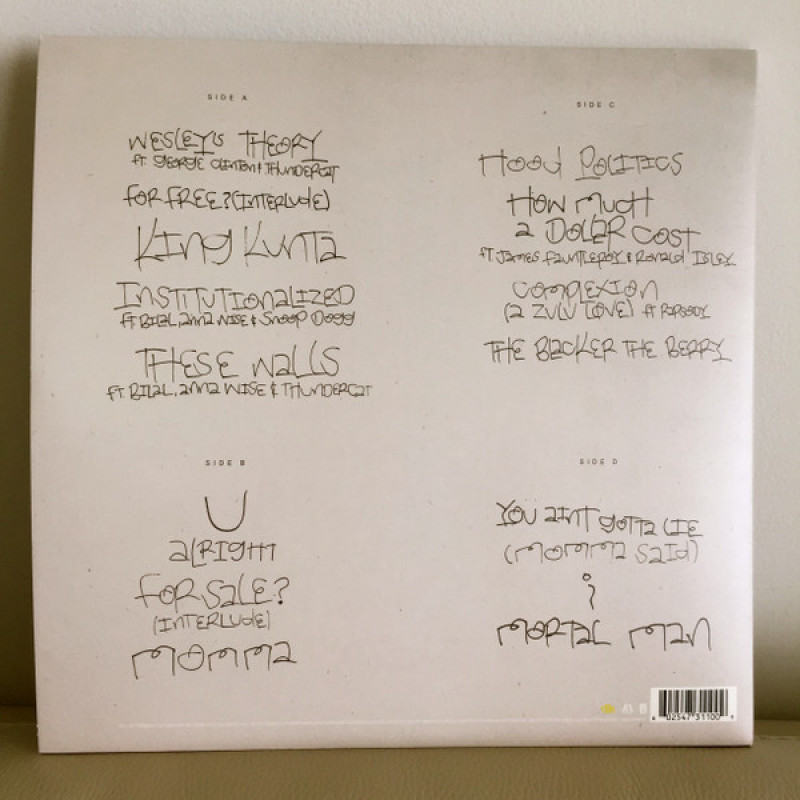 SIDE A
WESLEY'S THEORY
ft. GEORGE CLINTON & THUNDERCAT
FOR FREE? (INTERLUDE)
KING KUNTA
INSTITUTIONALIZED
ft BILAL, anna WISE & SNOOP DOGG
THESE WALLS
fT. BILAL, anna WISE & THUNDERCAT
SIDE B
U
alRIGHT
FOR SALE?
(INTERLUDE)
MOMMA
SIDE C
HOOD POLITICS
HOW MUCH
a DOLLAR COST
fT JAMES FAUNTLEROY & RONALD ISLEY
COMPLEXION
(a ZULU LOVE) ft RAPSODY
THE BLACKER THE BERRY
SIDE D
YOU aINT gOTTa LIE
(MOMMA SaId)
i
MORTAL MAN
6 02547 31100 9